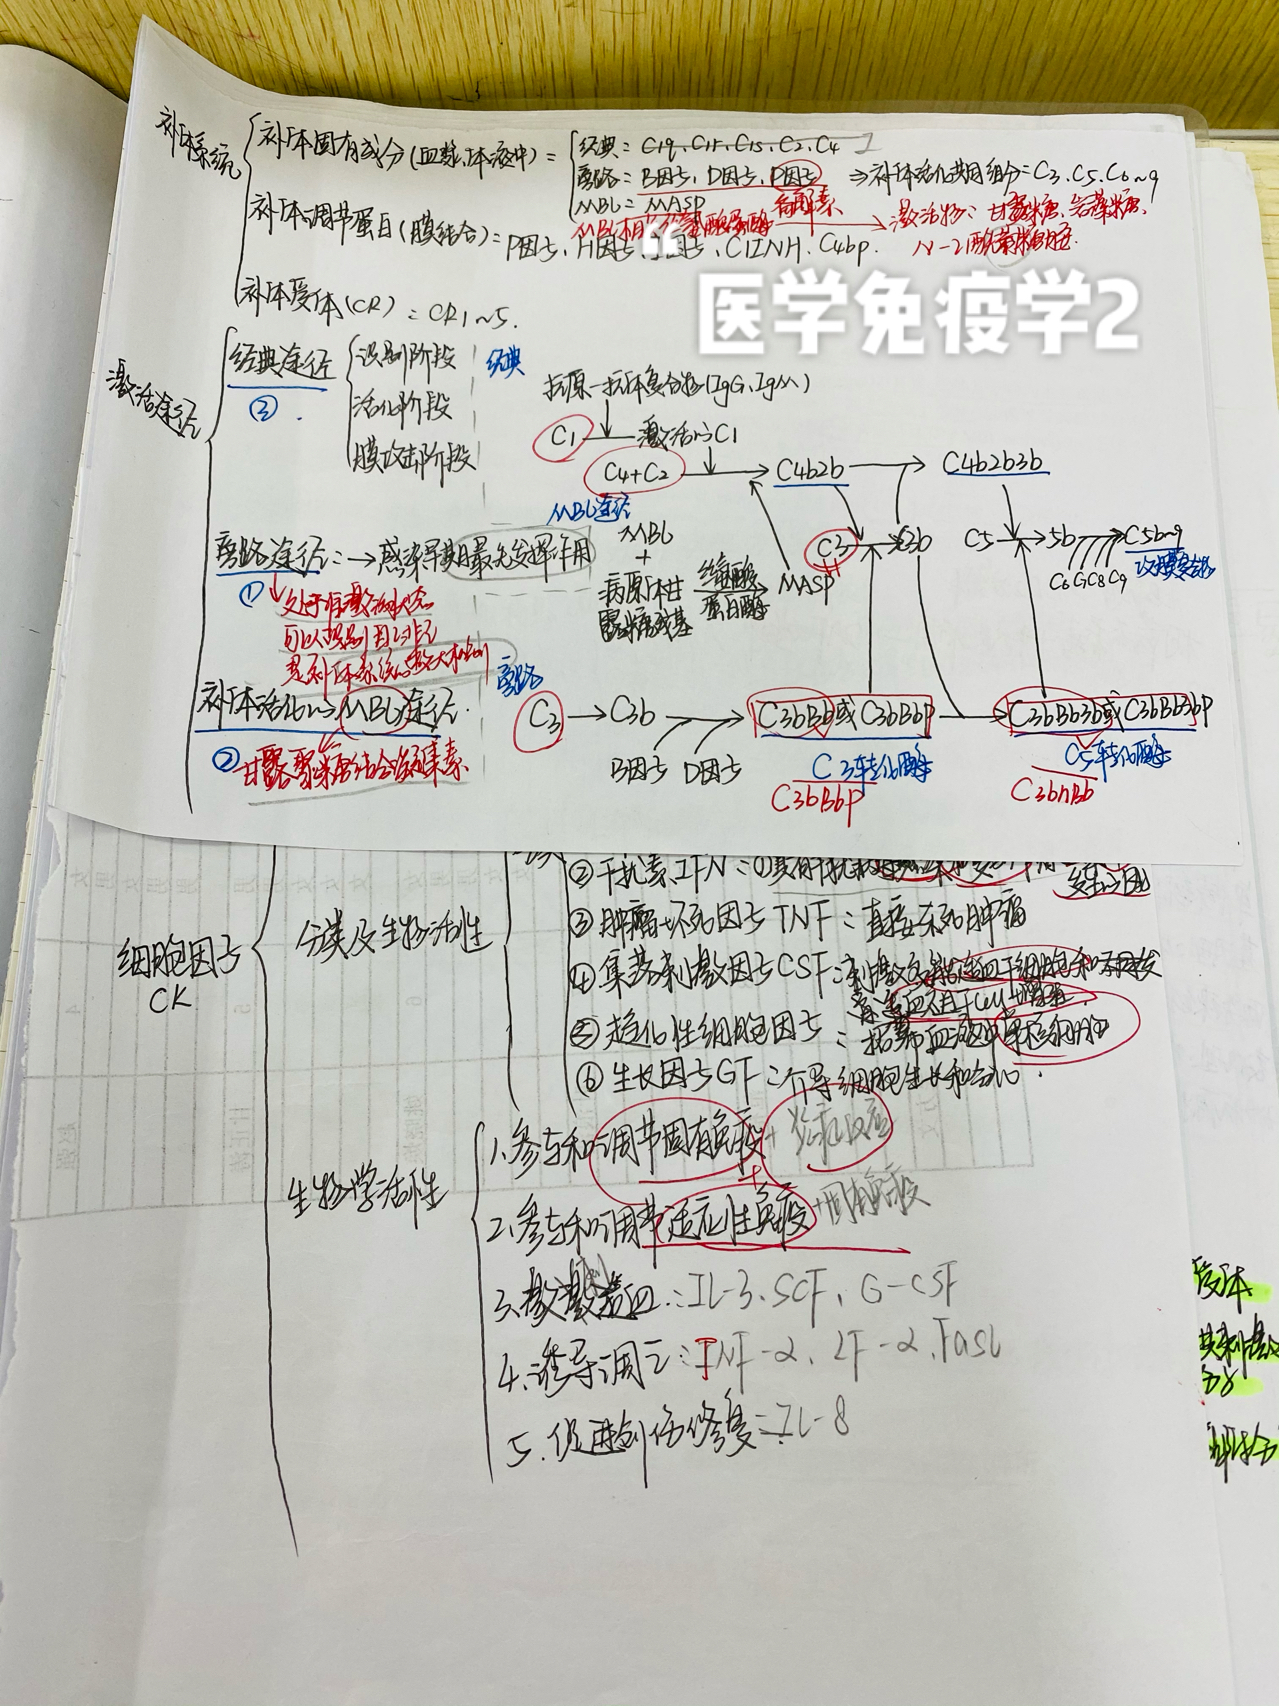 补体系统
补体固有成分(血浆、体液中)=
经典:C1q、C1r、C1s、C2、C4
旁路=B因子、D因子、P因子
⇒补体活化共同组分=C3、C5、C6~9
MBL=MASP
MBL相关丝氨酸蛋白酶
备解素
→激活物:甘露糖、岩藻糖、
N-乙酰葡糖胺
补体调节蛋白(膜结合)=P因子、H因子、I因子、C1INH、C4bp.
补体受体(CR):CR1~5.
“
医学免疫学2
激活途径
经典途径
③
识别阶段
活化阶段
膜攻击阶段
经典
抗原-抗体复合物(IgG、IgM)
C1
激活的C1
C4+C2
C4b2b
C4b2b3b
MBL途径
MBL
+
病原体甘
露糖残基
丝氨酸
蛋白酶
MASP
C3
C3b
C5
5b
C5b~9
C6 C7 C8 C9
攻膜复合物
旁路途径:→感染早期最先发挥作用
①
处于准激活状态
可以识别自己与非己
是补体系统的放大机制
补体活化的MBL途径.
②甘露聚糖结合凝集素
旁路
C3
C3b
B因子 D因子
C3bBb或C3bBbp
C3转化酶
C3bBbp
C3bBb3b或C3bBb3bp
C5转化酶
C3bnBb
细胞因子
CK
分类及生物活性
②干扰素IFN:①具有干扰病毒
③肿瘤坏死因子TNF:直接杀死肿瘤
④集落刺激因子CSF:刺激多能造血干细胞和不同发
育造血祖干cell增殖
⑤趋化性细胞因子:招募血液中单核细胞
⑥生长因子GF:介导细胞生长和分化.
生物学活性
1.参与和调节固有免疫+炎症反应
2.参与和调节适应性免疫+固有免疫
3.刺激造血:IL-3、SCF、G-CSF
4.诱导凋亡:TNF-α、LF-α、FasL
5.促进创伤修复:IL-8
受体
共刺激
分子